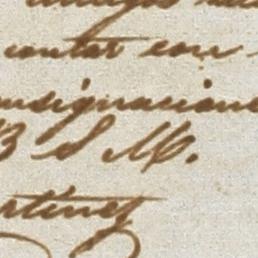 contar con
onsignacione
B S M.
rtinez